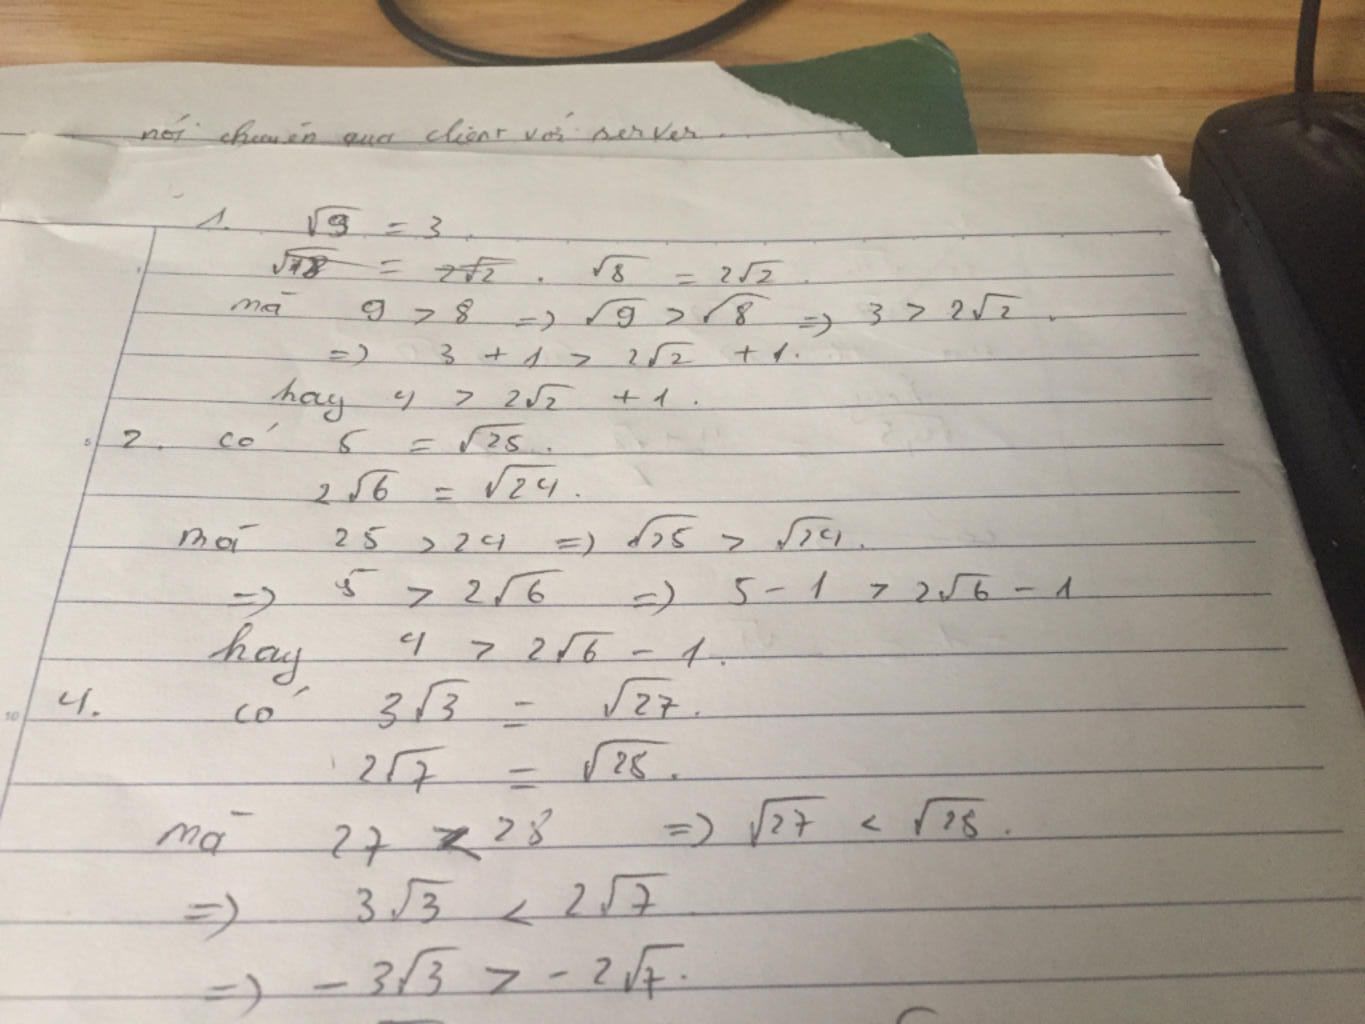 nói chuyện qua client với server.
1. √9 = 3.
√18 = 2√2 . √8 = 2√2.
mà 9 > 8 => √9 > √8 => 3 > 2√2.
=> 3 + 1 > 2√2 + 1.
hay 4 > 2√2 + 1.
5 2. có 5 = √25.
2√6 = √24.
mà 25 > 24 => √25 > √24.
=> 5 > 2√6 => 5 - 1 > 2√6 - 1
hay 4 > 2√6 - 1.
10 4. có 3√3 = √27.
2√7 = √28.
mà 27 < 28 => √27 < √28.
=> 3√3 < 2√7
=> -3√3 > -2√7.